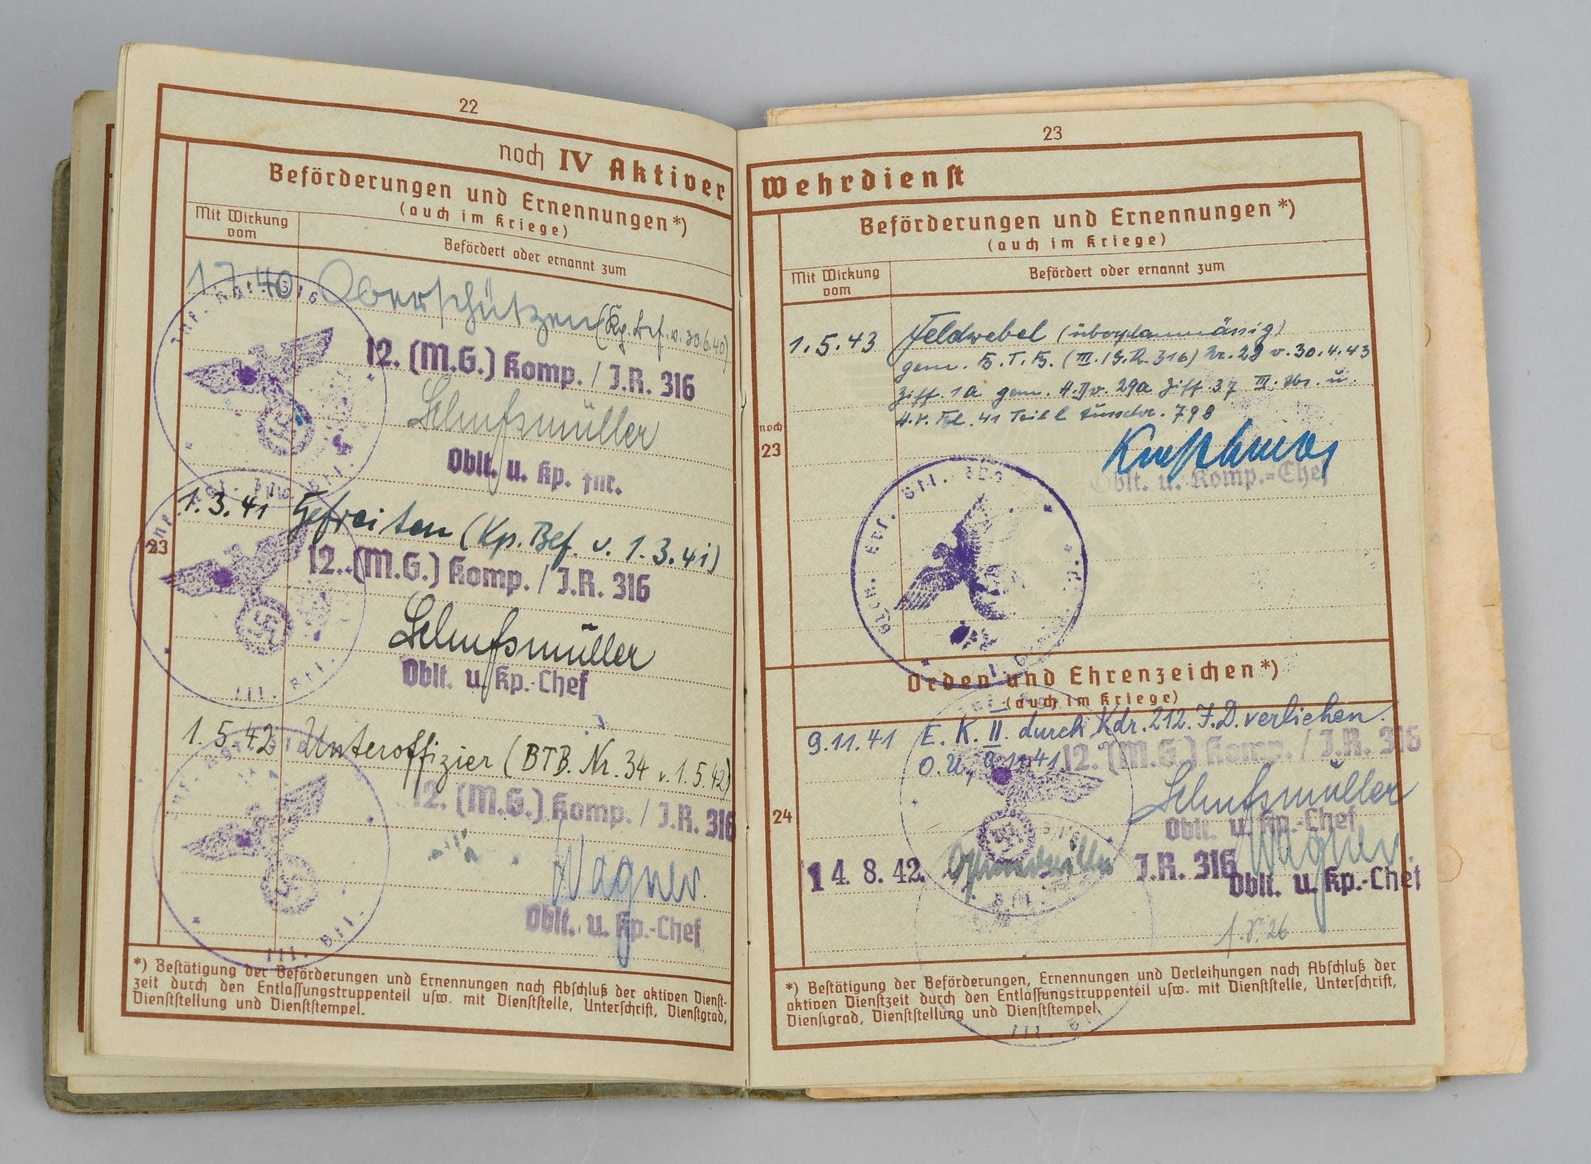 22
noch IV Aktiver
Beförderungen und Ernennungen*)
(auch im Kriege)
Mit Wirkung
vom
Befördert oder ernannt zum
1.7.40 Oberschützen (Kp. Bef. v. 30.6.40)
12. (M.G.) Komp. / J.R. 316
Oblt. u. Kp. Fhr.
1.3.41 Gefreiten (Kp. Bef. v. 1.3.41)
23
12. (M.G.) Komp. / J.R. 316
Oblt. u. Kp.-Chef
1.5.42 Unteroffizier (BTB. Nr. 34 v. 1.5.42)
12. (M.G.) Komp. / J.R. 316
Wagner
Oblt. u. Kp.-Chef
III. Btl.
*) Bestätigung der Beförderungen und Ernennungen nach Abschluß der aktiven Dienst-
zeit durch den Entlassungstruppenteil usw. mit Dienststelle, Unterschrift, Dienstgrad,
Dienststellung und Dienststempel.
23
Wehrdienst
Beförderungen und Ernennungen*)
(auch im Kriege)
Mit Wirkung
vom
Befördert oder ernannt zum
1.5.43 Feldwebel (überplanmässig)
gem. B.T.B. (III./G.R. 316) Nr. 29 v. 30.4.43
Ziff. 1a gem. H.Dv. 29a Ziff. 37
noch
23
Oblt. u. Komp.-Chef
Orden und Ehrenzeichen*)
(auch im Kriege)
9.11.41 E. K. II durch Kdr. 212. I.D. verliehen.
O.U., 9.11.41
12. (M.G.) Komp. / J.R. 316
Oblt. u. Kp.-Chef
24
14. 8. 42. J.R. 316
Wagner.
Oblt. u. Kp.-Chef
*) Bestätigung der Beförderungen, Ernennungen und Verleihungen nach Abschluß der
aktiven Dienstzeit durch den Entlassungstruppenteil usw. mit Dienststelle, Unterschrift,
Dienstgrad, Dienststellung und Dienststempel.